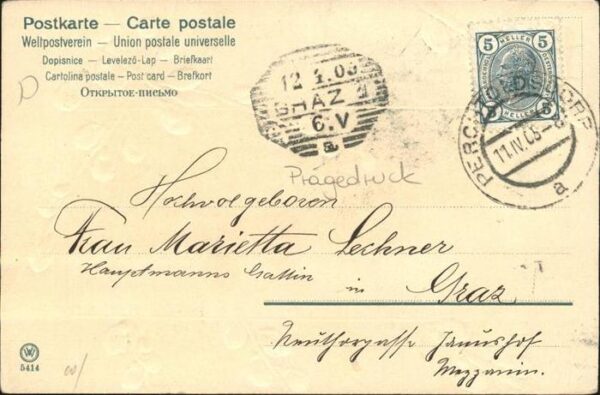 Postkarte — Carte postale
Weltpostverein — Union postale universelle
Dopisnice — Levelező-Lap — Briefkaart
Cartolina postale — Post card — Brefkort
Открытое-письмо
5 HELLER 5
5 HELLER 5
PERCHTOLDSDORF
11.IV.05
a
GRAZ
6.V
a
Prägedruck
Hochwolgeboren
Frau Marietta Lechner
Hauptmanns Gattin in Graz
Neuthorgasse
Mezzanin.
W
5414